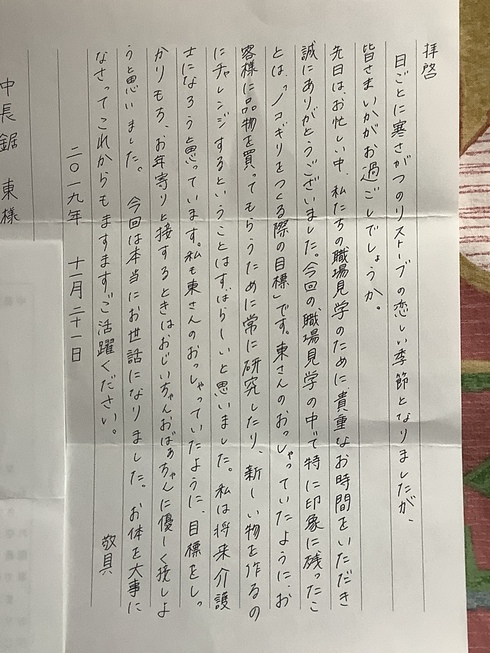 拝啓
日ごとに寒さがつのりストーブの恋しい季節となりましたが、
皆さまいかがお過ごしでしょうか。
先日は、お忙しい中、私たちの職場見学のために、貴重なお時間をいただき
誠にありがとうございました。今回の、職場見学の中で特に印象に残ったこ
とは、「ノコギリをつくる際の目標」です。東さんのおっしゃっていたように、お
客様に品物を買ってもらうために常に研究したり、新しい物を作るの
にチャレンジするということはすばらしいと思いました。私は将来介護
士になろうと思っています。私も東さんのおっしゃっていたように、目標をしっ
かりもち、お年寄りと接するときはおじいちゃんおばあちゃんに優しく接しよ
うと思いました。 今回は本当にお世話になりました。お体を大事に
なさってこれからもますますご活躍ください。
敬具
二〇一九年 十一月二十一日
中長鋸 東様